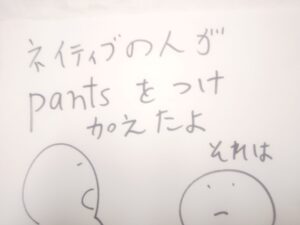 ネイティブの人が
pantsをつけ
加えたよ
それは